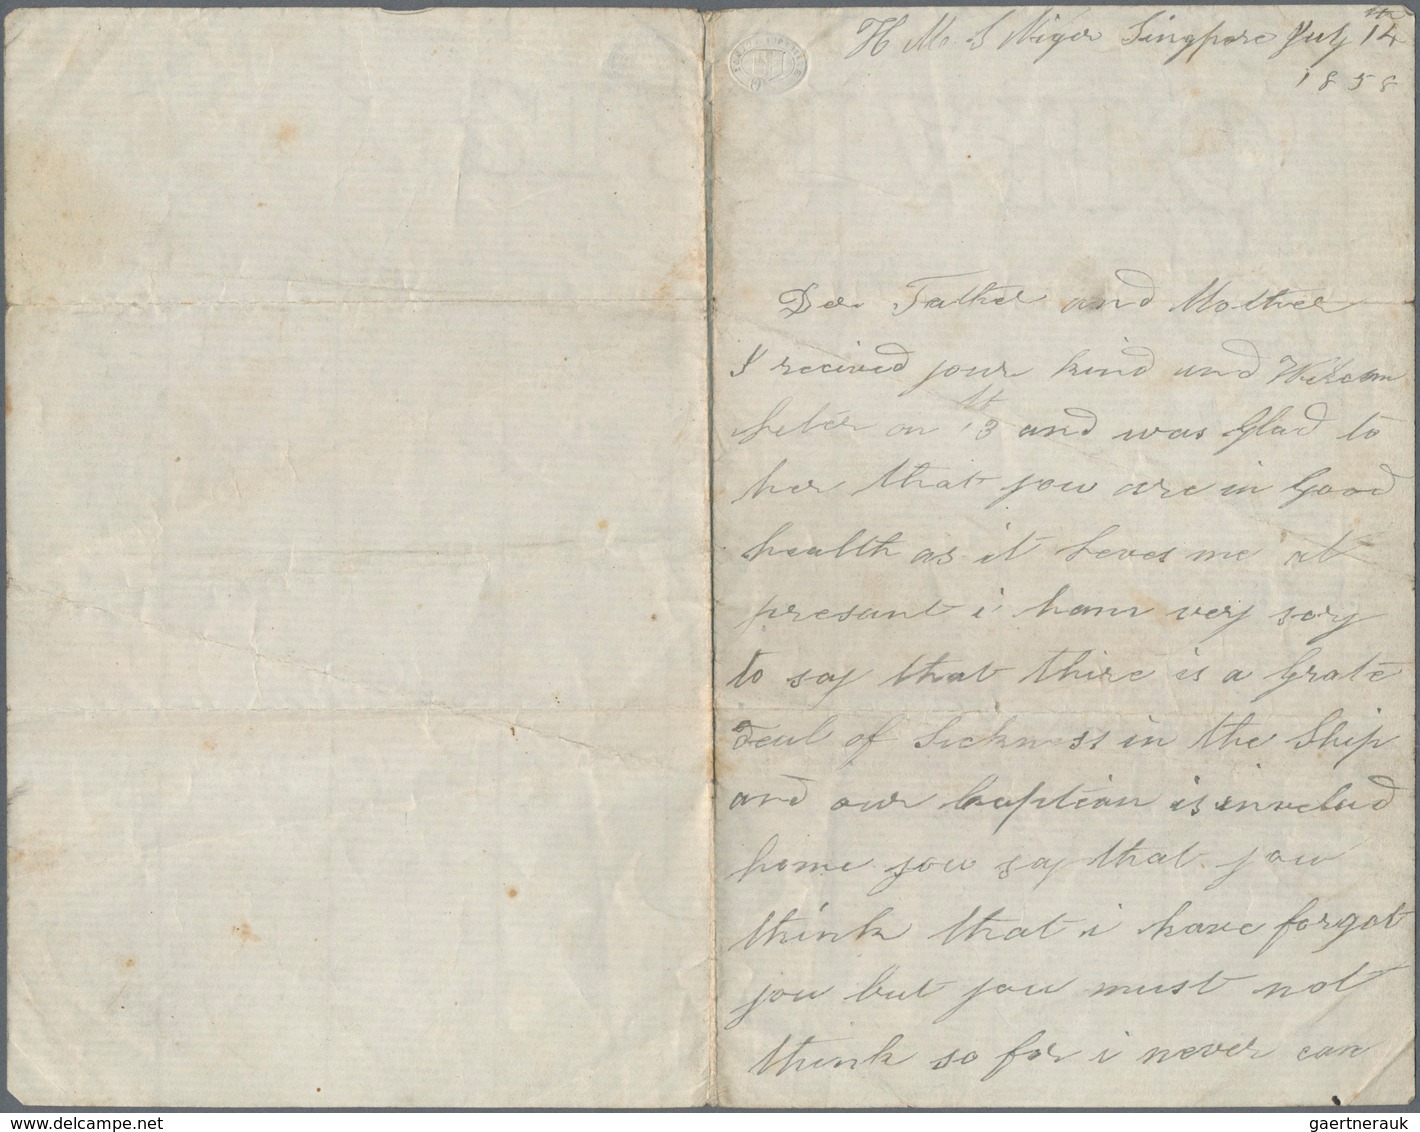 H M S Niger Singpore July 14th
1858
Der Father and Mother
I recived your kind and Welcom
leter on 13 and was Glad to
her that you are in Good
health as it leves me at
presant i ham very sory
to say that thire is a Grate
deal of Sickness in the Ship
and our Captian is invelud
home you say that you
think that i have forgot
you but you must not
think so for i never can
gaertnerauk / delcampe.net